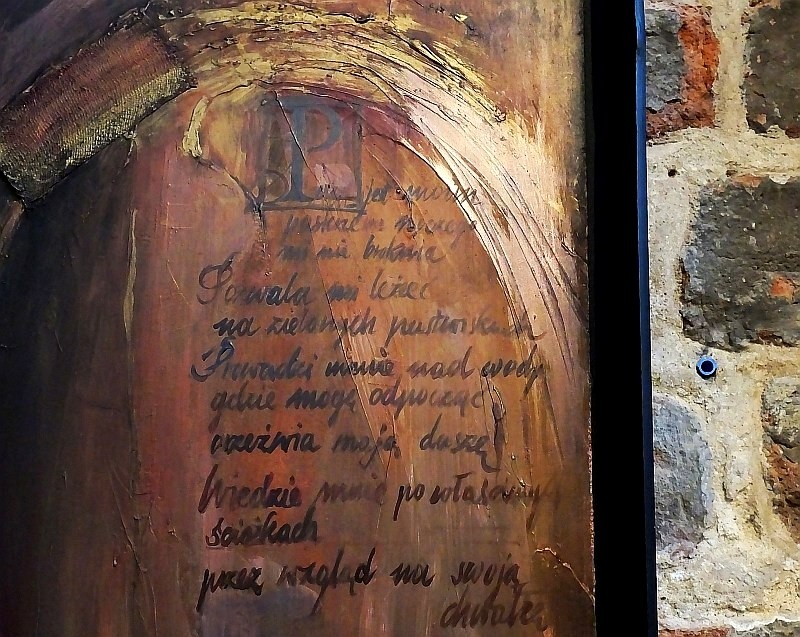 Pan jest moim
pasterzem niczego
mi nie braknie
Pozwala mi leżeć
na zielonych pastwiskach
Prowadzi mnie nad wody
gdzie mogę odpocząć
orzeźwia moją duszę
Wiedzie mnie po właściwych
ścieżkach
przez wzgląd na swoją
chwałę